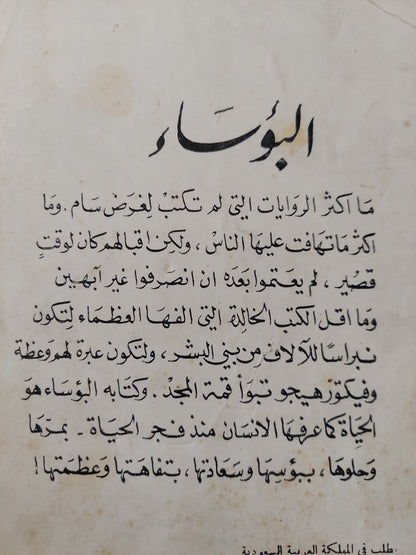 البؤساء
ما اكثر الروايات التي لم تكتب لغرض سام . وما
اكثر ما تهافت عليها الناس ، ولكن اقبالهم كان لوقتٍ
قصير ، لم يعتموا بعده ان انصرفوا غير آبهين
وما اقل الكتب الخالدة التي الفها العظماء لتكون
نبراساً للآلاف من بني البشر ، ولتكون عبرة لهم وعظة
وفيكتور هيجو تبوأ قمة المجد . وكتابه البؤساء هو
الحياة كما عرفها الانسان منذ فجر الحياة - بمرّها
وحلوها ، ببؤسها وسعادتها ، بتفاهتها وعظمتها !
طلب في المملكة العربية السعودية